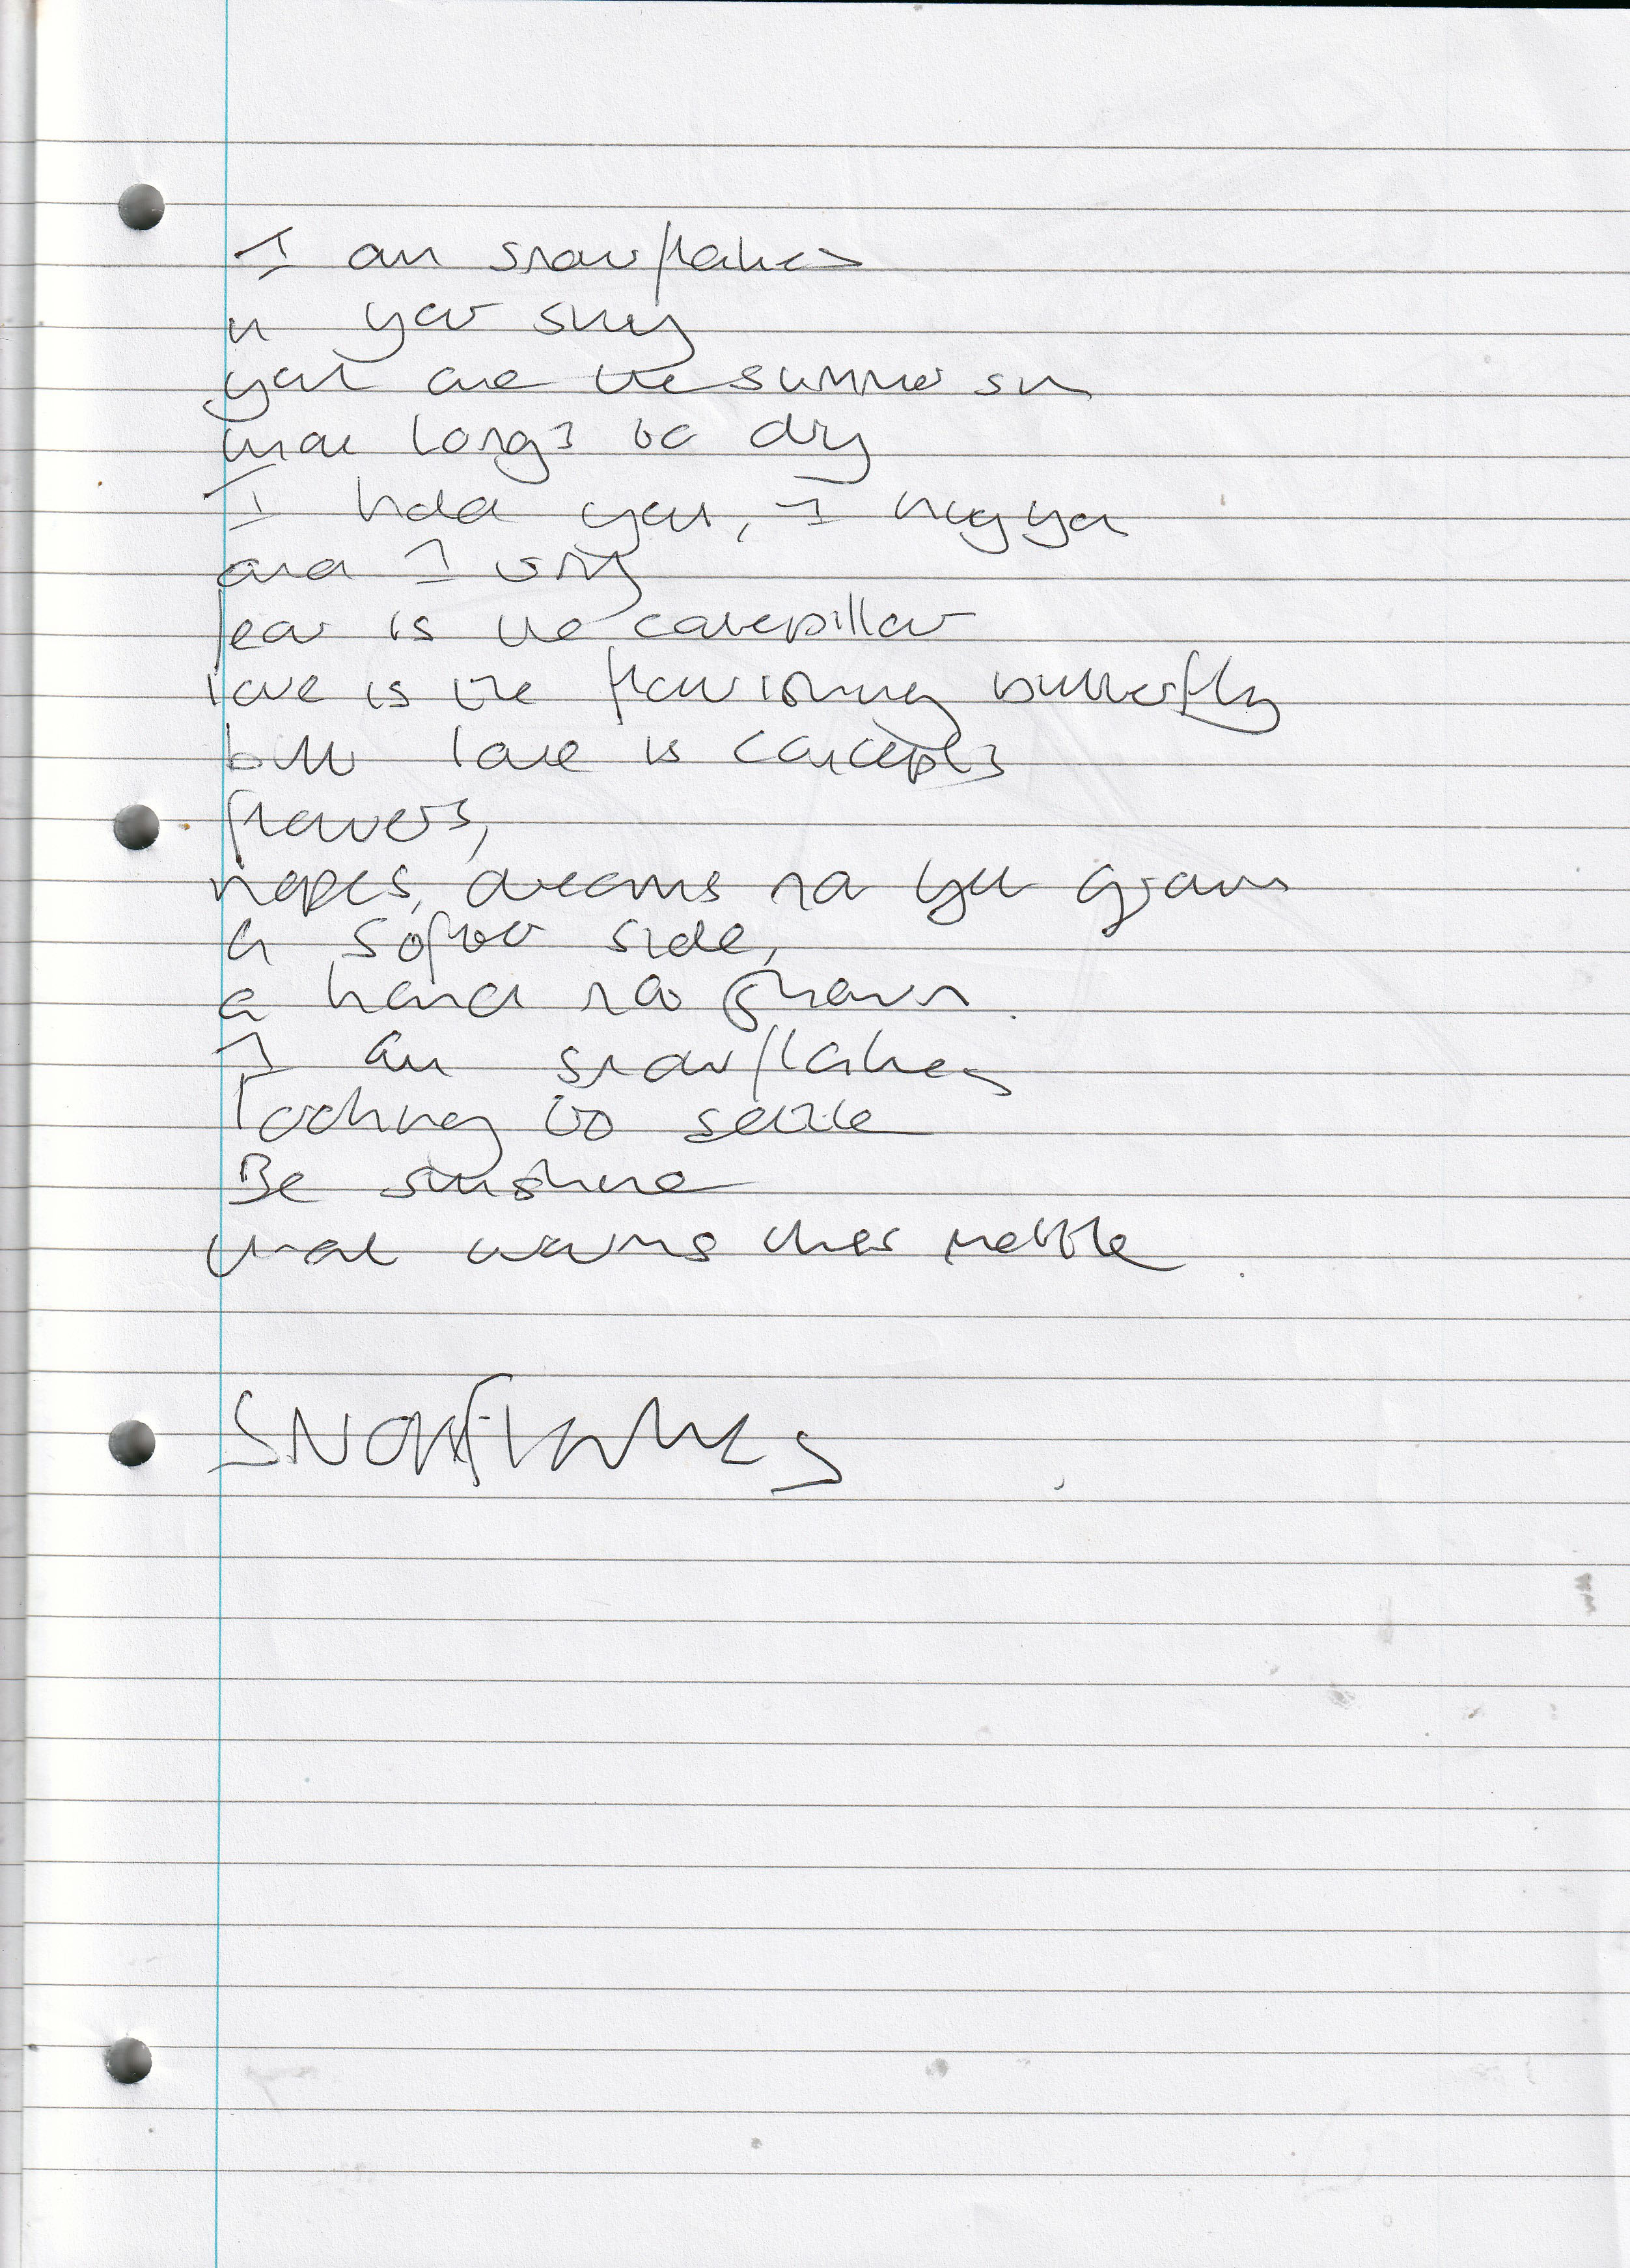 I am snowflakes
in your sky
you are the summer sun
that longs to dry
I hold you, I hug you
and I try
fear is the caterpillar
love is the flourishing butterfly
but love is concepts
flowers,
hopes, dreams not yet grown
a softer side,
a hand not shown.
I am snowflakes
looking to settle
Be sunshine
that warms this mettle.
SNOWflakes